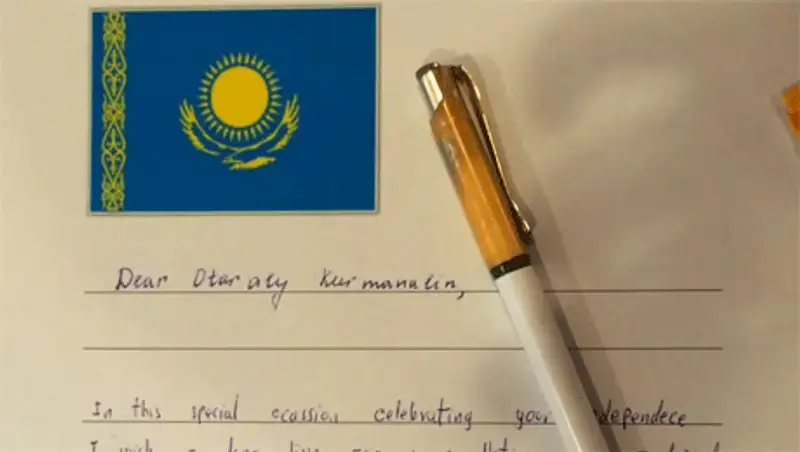 Dear Otaraly Kurmanalin,
In this special ocassion celebrating your dependece
I wish a